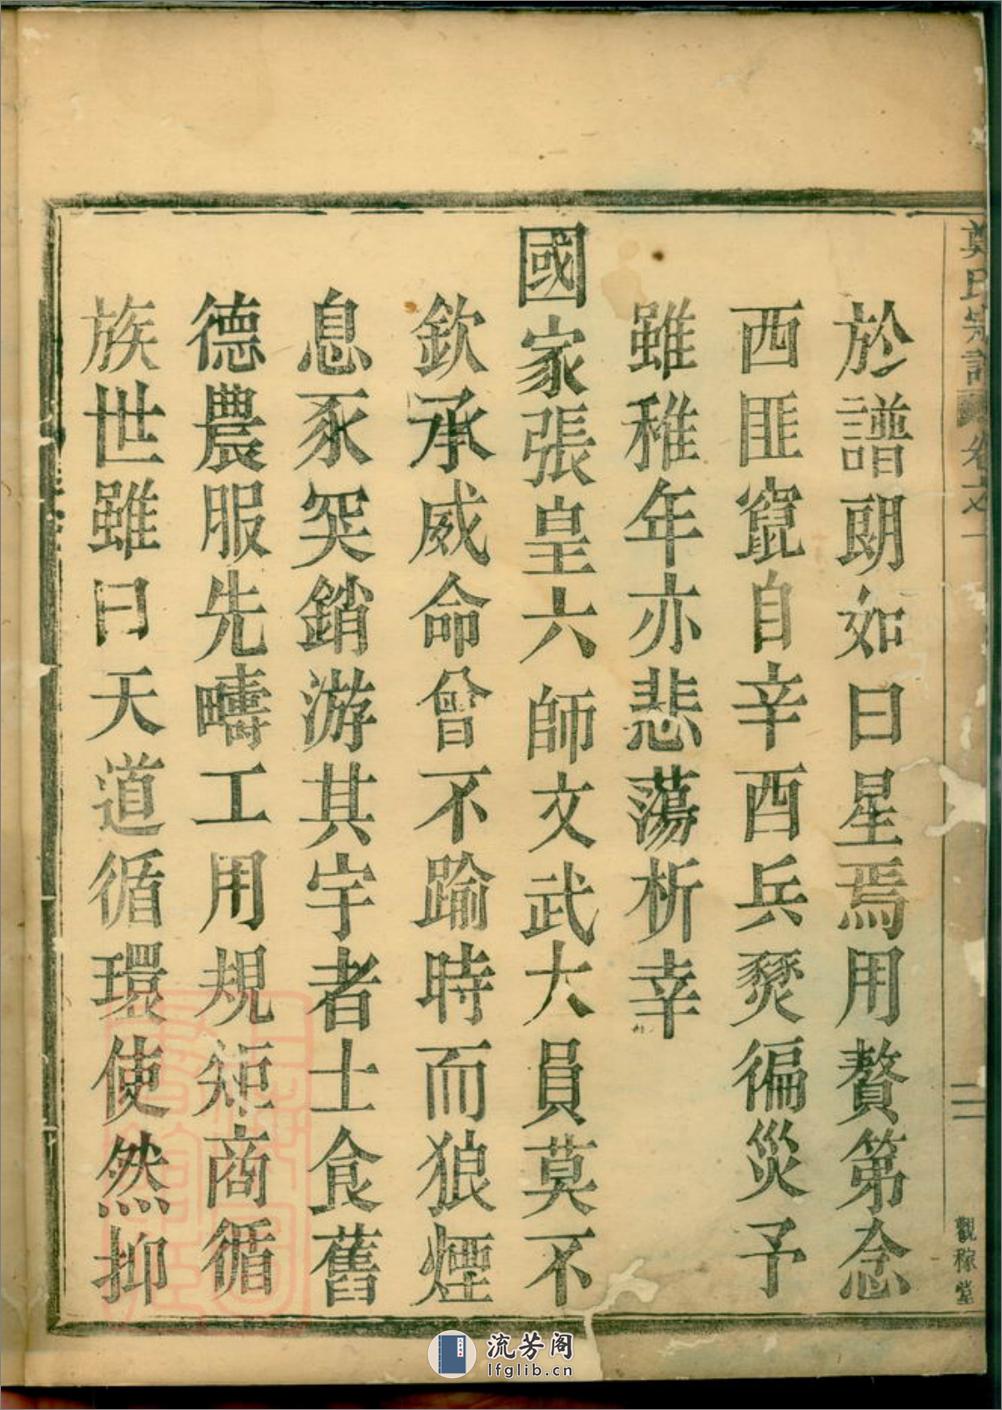 鄭氏宗譜
卷之一
二
觀稼堂
於譜朗如日星焉用贅第念
西匪竄自辛酉兵燹徧災予
雖稚年亦悲蕩析幸
國家張皇六師文武大員莫不
欽承威命曾不踰時而狼煙
息豕突銷游其宇者士食舊
德農服先疇工用規矩商循
族世雖曰天道循環使然抑
流芳阁
lfglib.cn